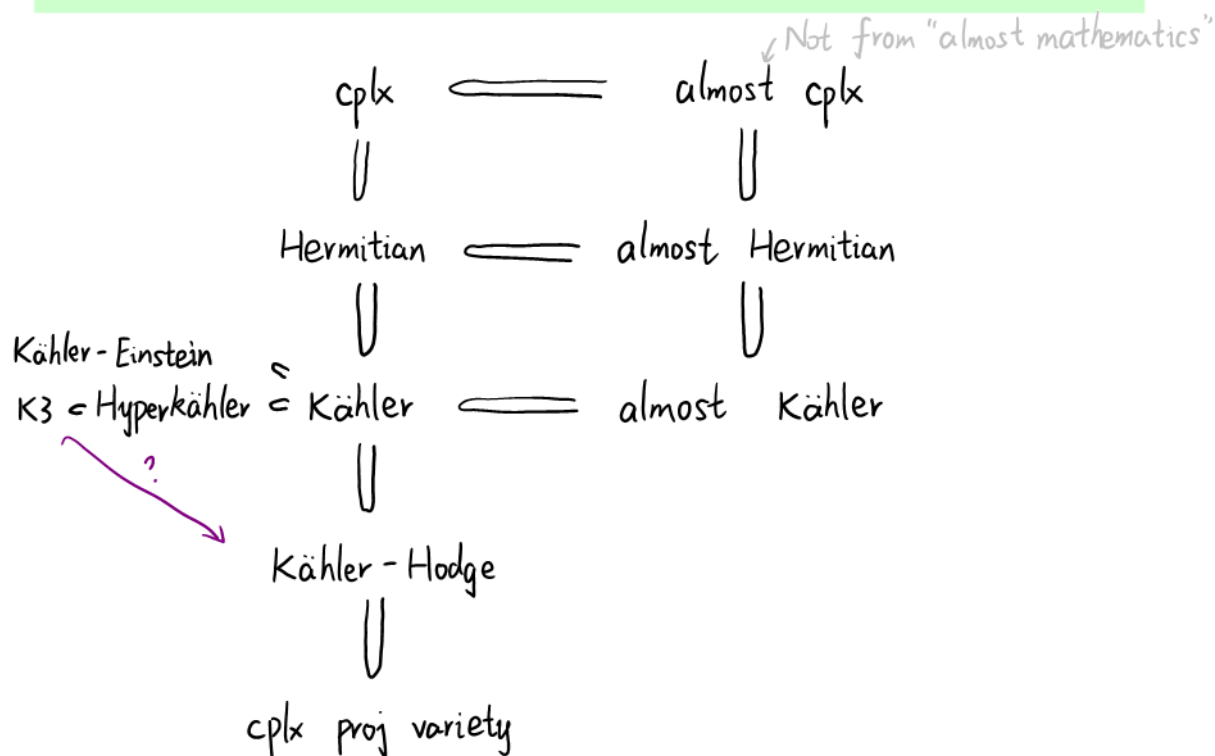 Not from "almost mathematics"
cplx ⊂ almost cplx
∪
∪
Hermitian ⊂ almost Hermitian
∪
∪
Kähler-Einstein
K3 ⊂ Hyperkähler ⊂ Kähler ⊂ almost Kähler
?
∪
Kähler-Hodge
∪
cplx proj variety